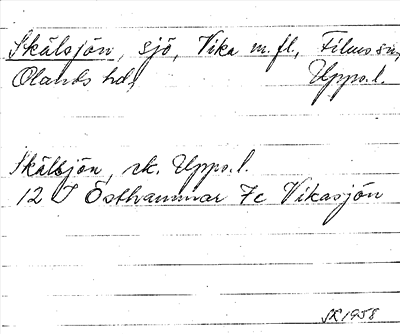 Skälsjön, sjö, Vika m.fl., Films sn,
Olands hd, Upps.l.
Skälsjön, rk. Upps.l.
12 I Östhammar 7c Vikasjön
SK 1958